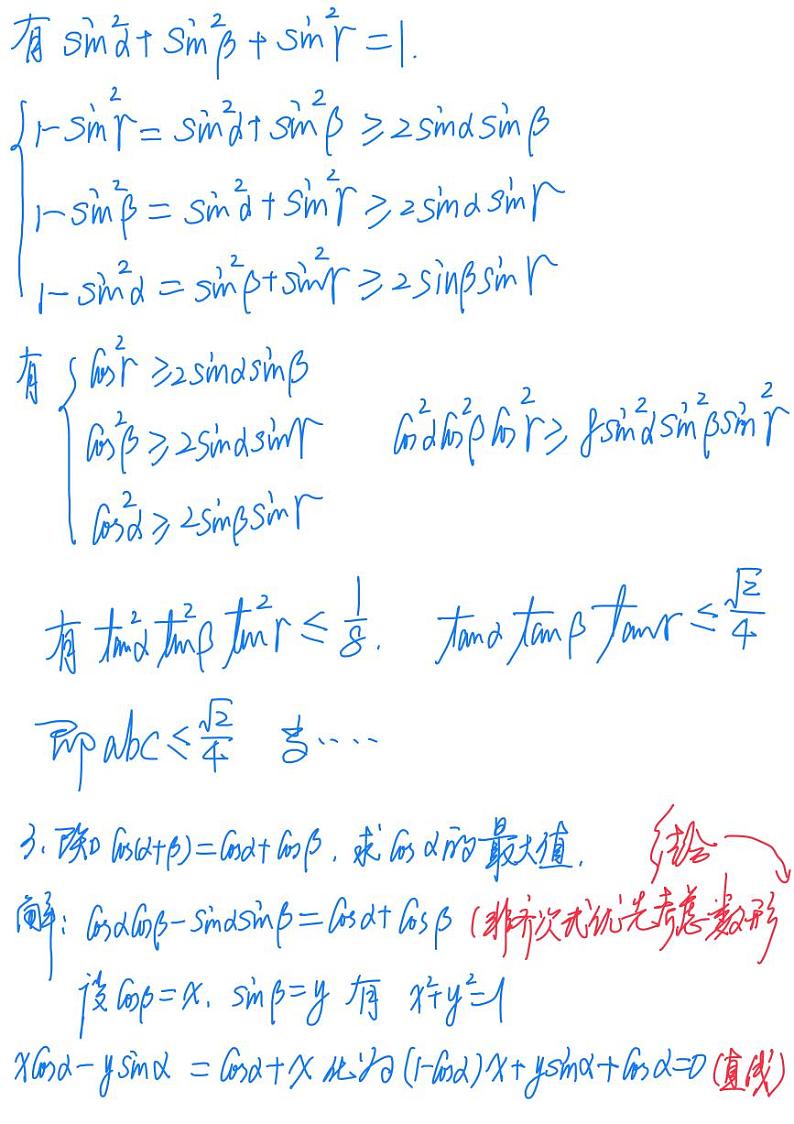 有 sin²α + sin²β + sin²γ = 1.
1-sin²γ = sin²α + sin²β ≥ 2sinα sinβ
1-sin²β = sin²α + sin²γ ≥ 2sinα sinγ
1-sin²α = sin²β + sin²γ ≥ 2sinβ sinγ
有 { cos²γ ≥ 2sinα sinβ
cos²β ≥ 2sinα sinγ cos²α cos²β cos²γ ≥ 8sin²α sin²β sin²γ
cos²α ≥ 2sinβ sinγ
有 tan²α tan²β tan²γ ≤ 1/8. tanα tanβ tanγ ≤ √2/4
即 abc ≤ √2/4 当····
3. 已知 cos(α+β) = cosα + cosβ, 求 cosα 的最大值. 结合
解: cosα cosβ - sinα sinβ = cosα + cosβ (非齐次式优先考虑数形
设 cosβ = x, sinβ = y 有 x²+y²=1
x cosα - y sinα = cosα + x 化为 (1-cosα)x + y sinα + cosα = 0 (直线)